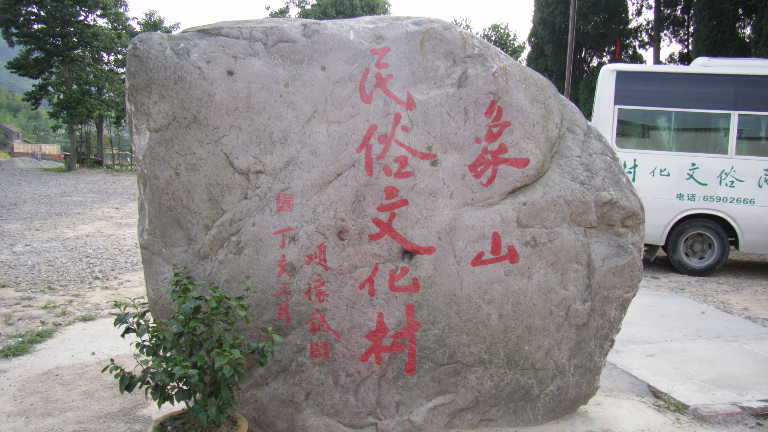 象山
民俗文化村
丁亥三月
村化文俗民
电话:65902666